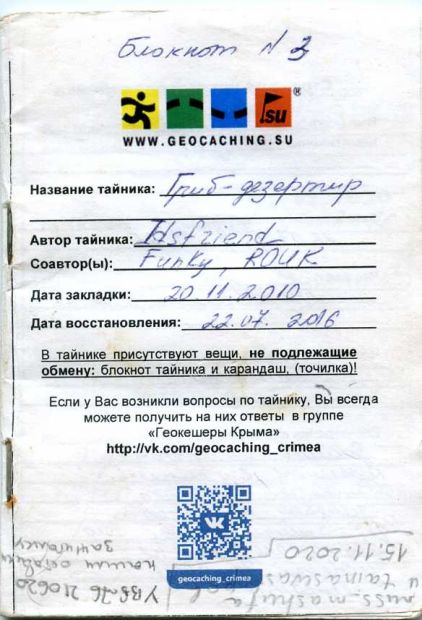 Блокнот N 3
.su
®
WWW.GEOCACHING.SU
Название тайника: Гриб-дезертир
Автор тайника: Idsfriend
Соавтор(ы): Funky, ROUK
Дата закладки: 20.11.2010
Дата восстановления: 22.07.2016
В тайнике присутствуют вещи, не подлежащие
обмену: блокнот тайника и карандаш, (точилка)!
Если у Вас возникли вопросы по тайнику, Вы всегда
можете получить на них ответы в группе
«Геокешеры Крыма»
http://vk.com/geocaching_crimea
geocaching_crimea
miss_mashuta
и
15.11.2020
210620
нашли оставили